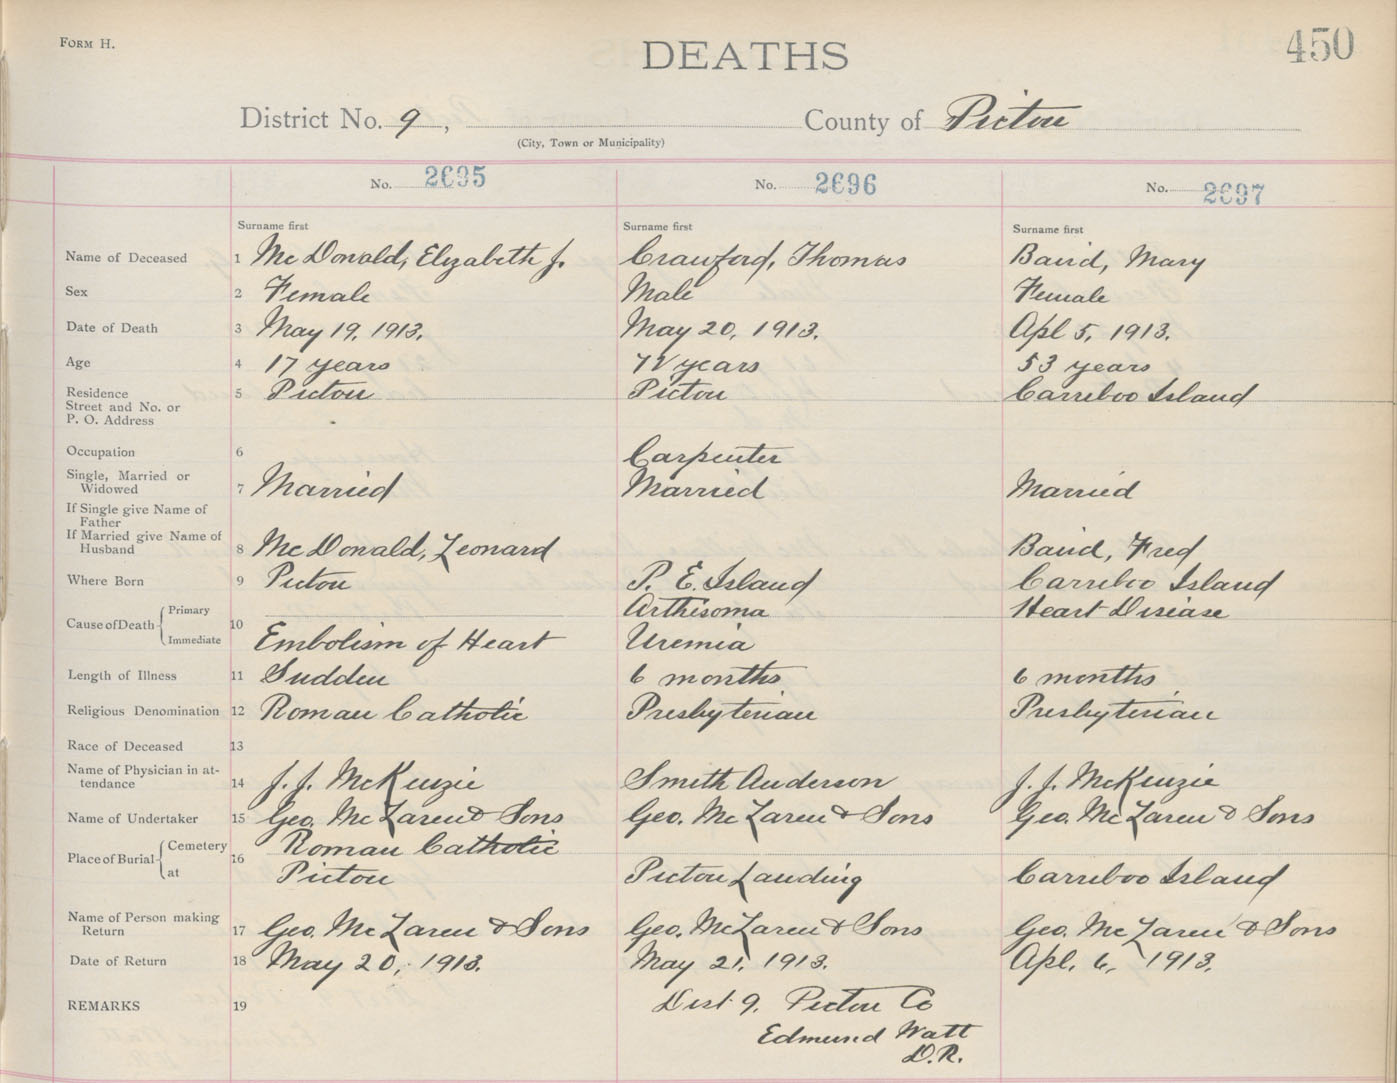 FORM H.
DEATHS
450
District No. 9, County of Pictou
(City, Town or Municipality)
No. 2695 No. 2696 No. 2697
Surname first Surname first Surname first
Name of Deceased 1 McDonald, Elizabeth J. Crawford, Thomas Baird, Mary
Sex 2 Female Male Female
Date of Death 3 May 19, 1913. May 20, 1913. Apl 5, 1913.
Age 4 17 years years 53 years
Residence 5 Pictou Pictou Carriboo Island
Street and No. or
P. O. Address
Occupation 6 Carpenter
Single, Married or
Widowed 7 Married Married Married
If Single give Name of
Father
If Married give Name of
Husband 8 McDonald, Leonard Baird, Fred
Where Born 9 Pictou P. E. Island Carriboo Island
Cause of Death Primary 10 Heart Disease
Immediate Embolism of Heart Uremia
Length of Illness 11 Sudden 6 months 6 months
Religious Denomination 12 Roman Catholic Presbyterian Presbyterian
Race of Deceased 13
Name of Physician in at-
tendance 14 J. J. McKenzie Smith Anderson J. J. McKenzie
Name of Undertaker 15 Geo. McLaren & Sons Geo. McLaren & Sons Geo. McLaren & Sons
Place of Burial Cemetery 16 Roman Catholic
at Pictou Pictou Landing Carriboo Island
Name of Person making
Return 17 Geo. McLaren & Sons Geo. McLaren & Sons Geo. McLaren & Sons
Date of Return 18 May 20, 1913. May 21, 1913. Apl. 6, 1913.
REMARKS 19 Dist 9, Pictou Co
Edmund Watt
D.R.